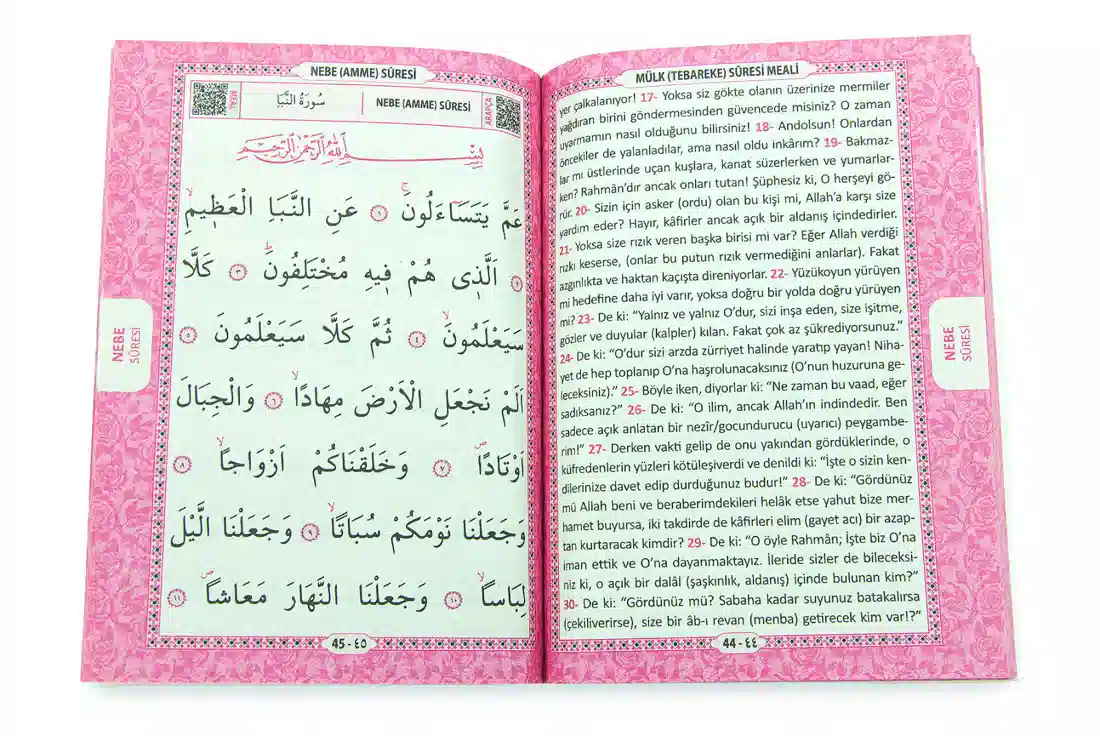 NEBE (AMME) SÛRESİ
MEAL
سُورَةُ النَّبَأِ
NEBE (AMME) SÛRESİ
ARAPÇA
بِسْمِ اللّٰهِ الرَّحْمٰنِ الرَّحٖيمِ
عَمَّ يَتَسَٓاءَلُونَۚ ﴿١﴾ عَنِ النَّبَاِ الْعَظٖيمِۙ
﴿٢﴾ اَلَّذٖى هُمْ فٖيهِ مُخْتَلِفُونَؕ ﴿٣﴾ كَلَّا
سَيَعْلَمُونَۙ ﴿٤﴾ ثُمَّ كَلَّا سَيَعْلَمُونَ ﴿٥﴾
اَلَمْ نَجْعَلِ الْاَرْضَ مِهَادًاۙ ﴿٦﴾ وَالْجِبَالَ
اَوْتَادًاۖ ﴿٧﴾ وَخَلَقْنَاكُمْ اَزْوَاجًاۙ ﴿٨﴾
وَجَعَلْنَا نَوْمَكُمْ سُبَاتًاۙ ﴿٩﴾ وَجَعَلْنَا الَّيْلَ
لِبَاسًاۙ ﴿١٠﴾ وَجَعَلْنَا النَّهَارَ مَعَاشًاۖ ﴿١١﴾
45 - ٤٥
NEBE
SÛRESİ
MÜLK (TEBAREKE) SÛRESİ MEALİ
yer çalkalanıyor! 17- Yoksa siz gökte olanın üzerinize mermiler
yağdıran birini göndermesinden güvencede misiniz? O zaman
uyarmamın nasıl olduğunu bilirsiniz! 18- Andolsun! Onlardan
öncekiler de yalanladılar, ama nasıl oldu inkârım? 19- Bakmaz-
lar mı üstlerinde uçan kuşlara, kanat süzerlerken ve yumarlar-
ken? Rahmân’dır ancak onları tutan! Şüphesiz ki, O herşeyi gö-
rür. 20- Sizin için asker (ordu) olan bu kişi mi, Allah’a karşı size
yardım eder? Hayır, kâfirler ancak açık bir aldanış içindedirler.
21- Yoksa size rızık veren başka birisi mi var? Eğer Allah verdiği
rızkı keserse, (onlar bu putun rızık vermediğini anlarlar). Fakat
azgınlıkta ve haktan kaçışta direniyorlar. 22- Yüzükoyun yürüyen
mi hedefine daha iyi varır, yoksa doğru bir yolda doğru yürüyen
mi? 23- De ki: “Yalnız ve yalnız O’dur, sizi inşa eden, size işitme,
gözler ve duyular (kalpler) kılan. Fakat çok az şükrediyorsunuz.”
24- De ki: “O’dur sizi arzda zürriyet halinde yaratıp yayan! Niha-
yet de hep toplanıp O’na haşrolunacaksınız (O’nun huzuruna ge-
leceksiniz).” 25- Böyle iken, diyorlar ki: “Ne zaman bu vaad, eğer
sadıksanız?” 26- De ki: “O ilim, ancak Allah’ın indindedir. Ben
sadece açık anlatan bir nezîr/gocundurucu (uyarıcı) peygambe-
rim!” 27- Derken vakti gelip de onu yakından gördüklerinde, o
küfredenlerin yüzleri kötüleşiverdi ve denildi ki: “İşte o sizin ken-
dilerinize davet edip durduğunuz budur!” 28- De ki: “Gördünüz
mü Allah beni ve beraberimdekileri helâk etse yahut bize mer-
hamet buyursa, iki takdirde de kâfirleri elim (gayet acı) bir azap-
tan kurtaracak kimdir? 29- De ki: “O öyle Rahmân; İşte biz O’na
iman ettik ve O’na dayanmaktayız. İleride sizler de bileceksi-
niz ki, o açık bir dalâl (şaşkınlık, aldanış) içinde bulunan kim?”
30- De ki: “Gördünüz mü? Sabaha kadar suyunuz batakalırsa
(çekiliverirse), size bir âb-ı revan (menba) getirecek kim var!?”
44 - ٤٤
NEBE
SÛRESİ